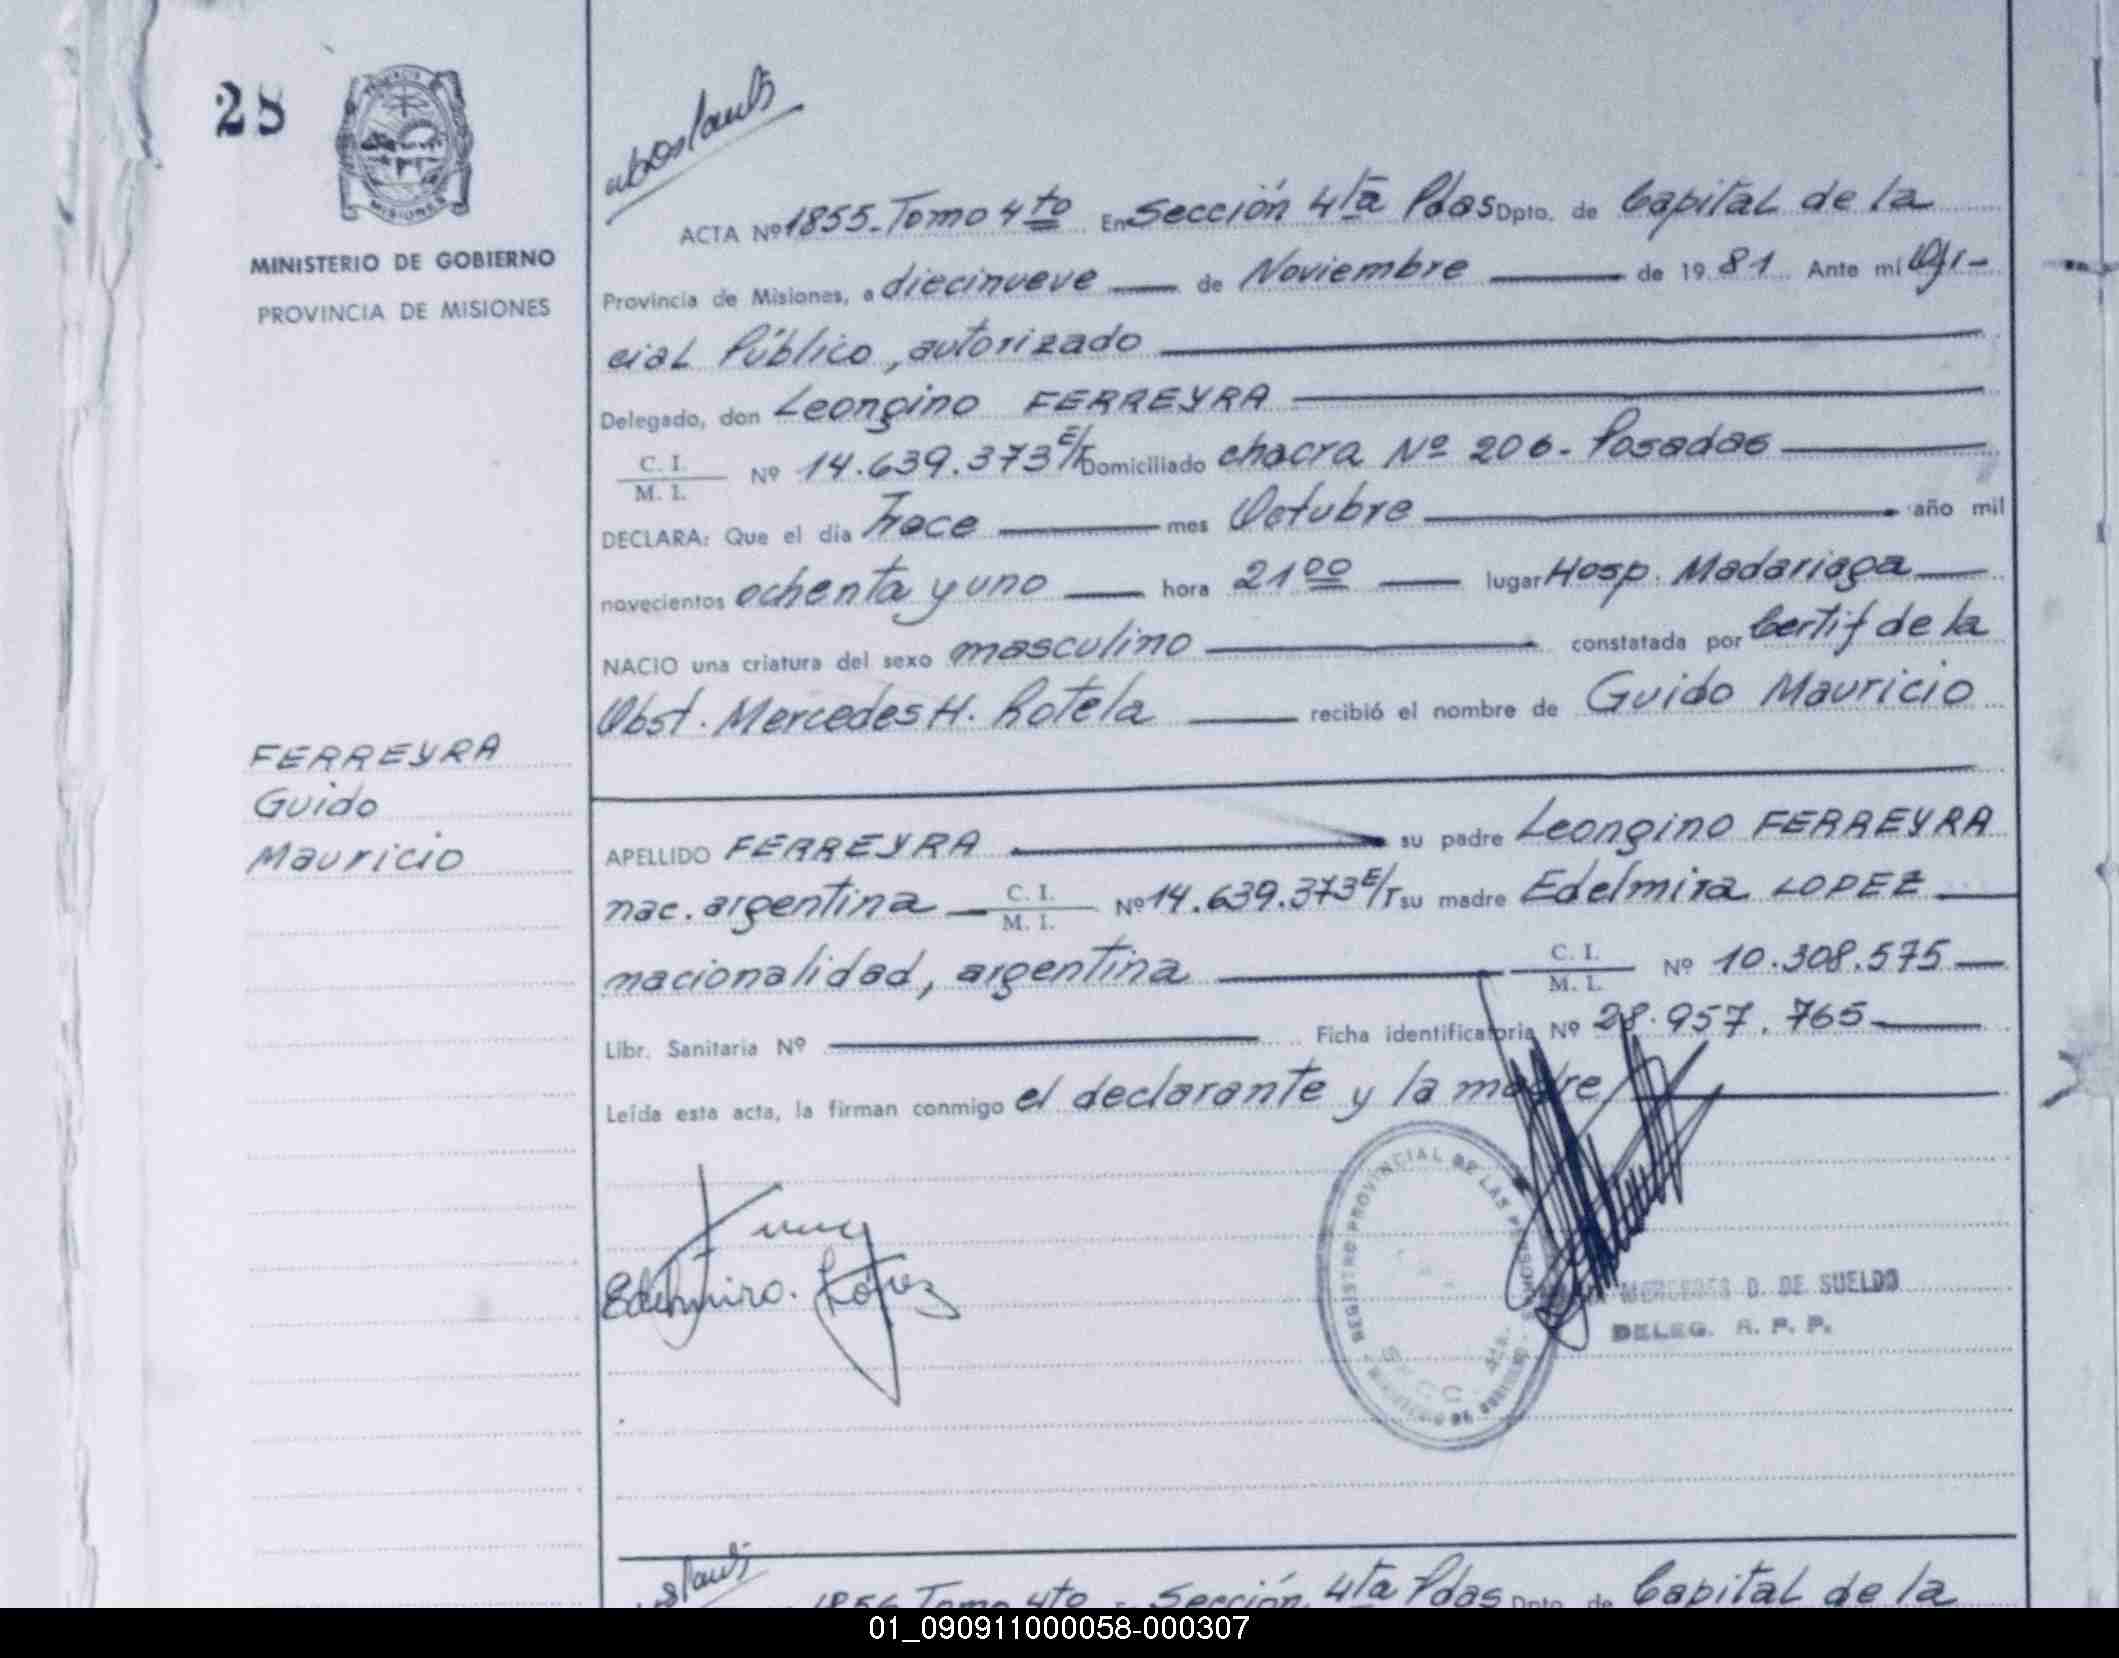 28
MISIONES
MINISTERIO DE GOBIERNO
PROVINCIA DE MISIONES
FERREYRA
Guido
Mauricio
ACTA Nº 1855-Tomo 4to En Sección 4ta Pdas Dpto. de Capital de la
Provincia de Misiones, a diecinueve de Noviembre de 1981 Ante mi Ofi-
cial Público, autorizado
Delegado, don Leongino FERREYRA
C. I.
M. I.
Nº 14.639.373 E/T Domiciliado chacra Nº 206 - Posadas
DECLARA: Que el día Trece mes Octubre año mil
novecientos ochenta y uno hora 21 00 lugar Hosp. Madariaga
NACIO una criatura del sexo masculino constatada por Certif de la
Obst. Mercedes H. Rotela recibió el nombre de Guido Mauricio
APELLIDO FERREYRA su padre Leongino FERREYRA
nac. argentina C. I. M. I. Nº 14.639.373 E/T su madre Edelmira LOPEZ
nacionalidad, argentina C. I. M. I. Nº 10.308.575
Libr. Sanitaria Nº Ficha identificatoria Nº 28.957.765
Leída esta acta, la firman conmigo el declarante y la madre
Edelmira López
REGISTRO PROVINCIAL DE LAS PERSONAS
SECC. 4ta.
MERCEDES D. DE SUELDO
DELEG. R. P. P.
1856 Tomo 4to Sección 4ta Pdas Dpto. de Capital de la
01_090911000058-000307